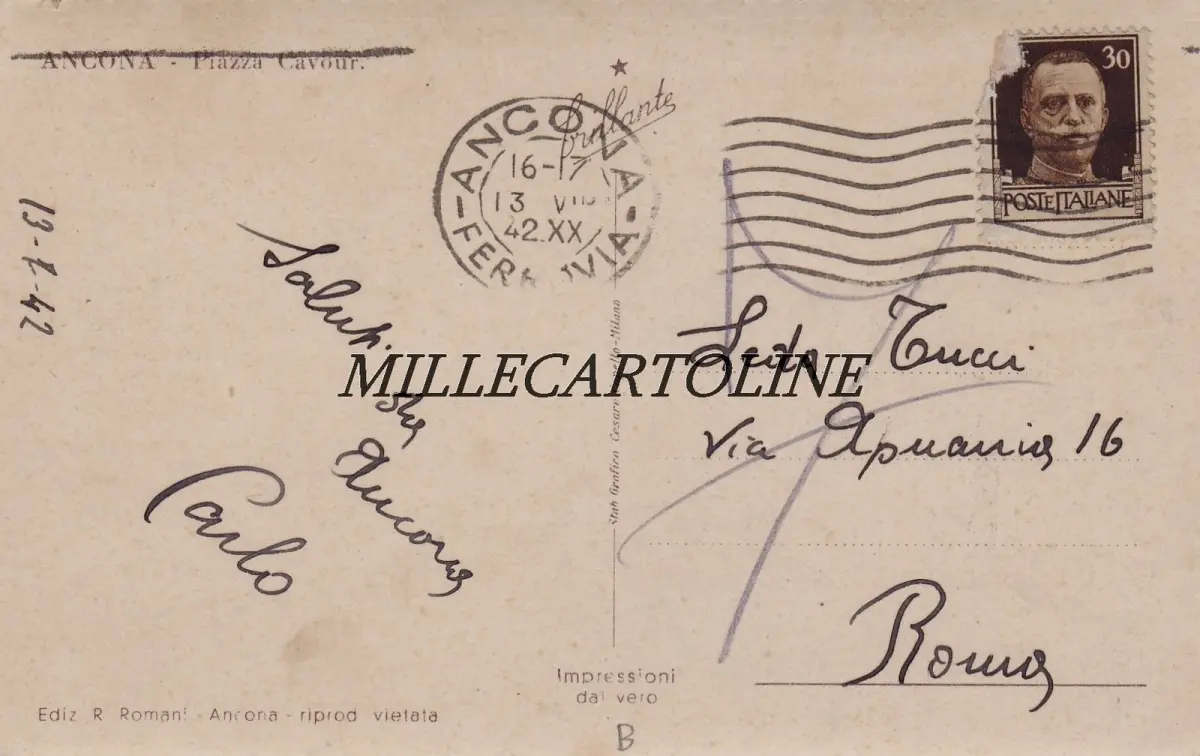 ANCONA - Piazza Cavour.
brillante
ANCONA
FERROVIA
16-17
13 VIII
42.XX
30
POSTE ITALIANE
13-8-42
Saluti
da
Ancona
Carlo
MILLECARTOLINE
Tucci
Via Apuania 16
Roma
Stab Grafico Cesare -Milano
Impressioni
dal vero
Ediz R Romani - Ancona - riprod vietata
B